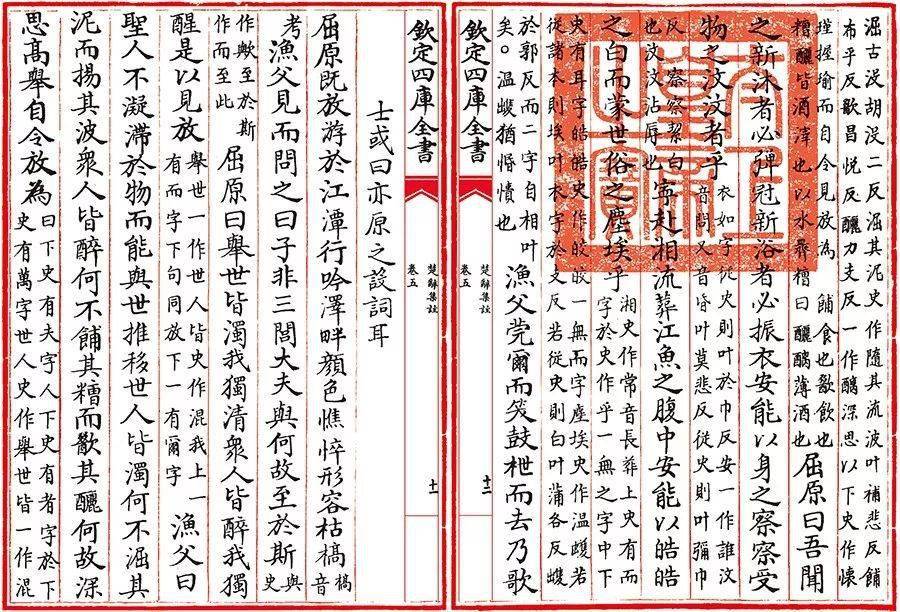 欽定四庫全書
楚辭集註
卷五
十一
士或曰亦原之設詞耳
屈原既放游於江潭行吟澤畔顔色憔悴形容枯槁槁音
考漁父見而問之曰子非三閭大夫與何故至於斯與史
作歟至於斯作而至此屈原曰舉世皆濁我獨清衆人皆醉我獨
醒是以見放舉世一作世人皆史作混我上一有而字下句同放下一有爾字漁父曰
聖人不凝滯於物而能與世推移世人皆濁何不淈其
泥而揚其波衆人皆醉何不餔其糟而歠其釃何故深
思高舉自令放為曰下史有夫字人下史有者字於下史有萬字世人史作舉世皆一作混
淈古沒胡沒二反淈其泥史作隨其流波叶補悲反餔布乎反歠昌悅反釃力支反一作醨深思以下史作懷
瑾握瑜而自令見放為餔食也歠飲也糟釃皆酒滓也以水齊糟曰釃醨薄酒也屈原曰吾聞
之新沐者必彈冠新浴者必振衣安能以身之察察受
物之汶汶者乎衣如字從史則叶於巾反安一作誰汶音問又音昏叶莫悲反從史則叶彌巾
反察察潔白也汶汶沾辱也寧赴湘流葬江魚之腹中安能以皓皓
之白而蒙世俗之塵埃乎湘史作常音長葬上史有而字於史作乎一無之字中下
史有耳字皓皓史作皎皎一無而字塵埃史作温蠖若從諸本則埃叶衣字於支反若從史則白叶蒲各反蠖
於郭反而二字自相叶矣○温蠖猶惛憒也漁父莞爾而笑鼓枻而去乃歌
欽定四庫全書
楚辭集註
卷五
十二